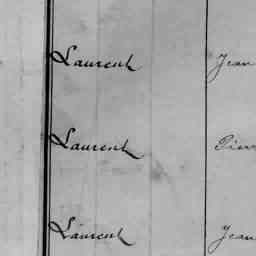 Laurent Jean
Laurent
Laurent Jean